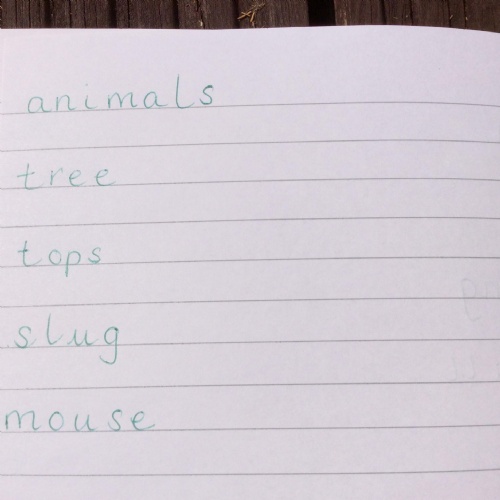 animals
tree
tops
slug
mouse